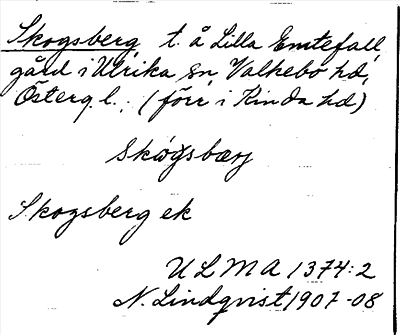 Skogsberg t. å Lilla Emtefall,
gård i Ulrika sn, Valkebo hd,
Österg.l. (förr i Kinda hd)
skógsbærj
Skogsberg ek
ULMA 1374:2
N. Lindqvist 1907-08